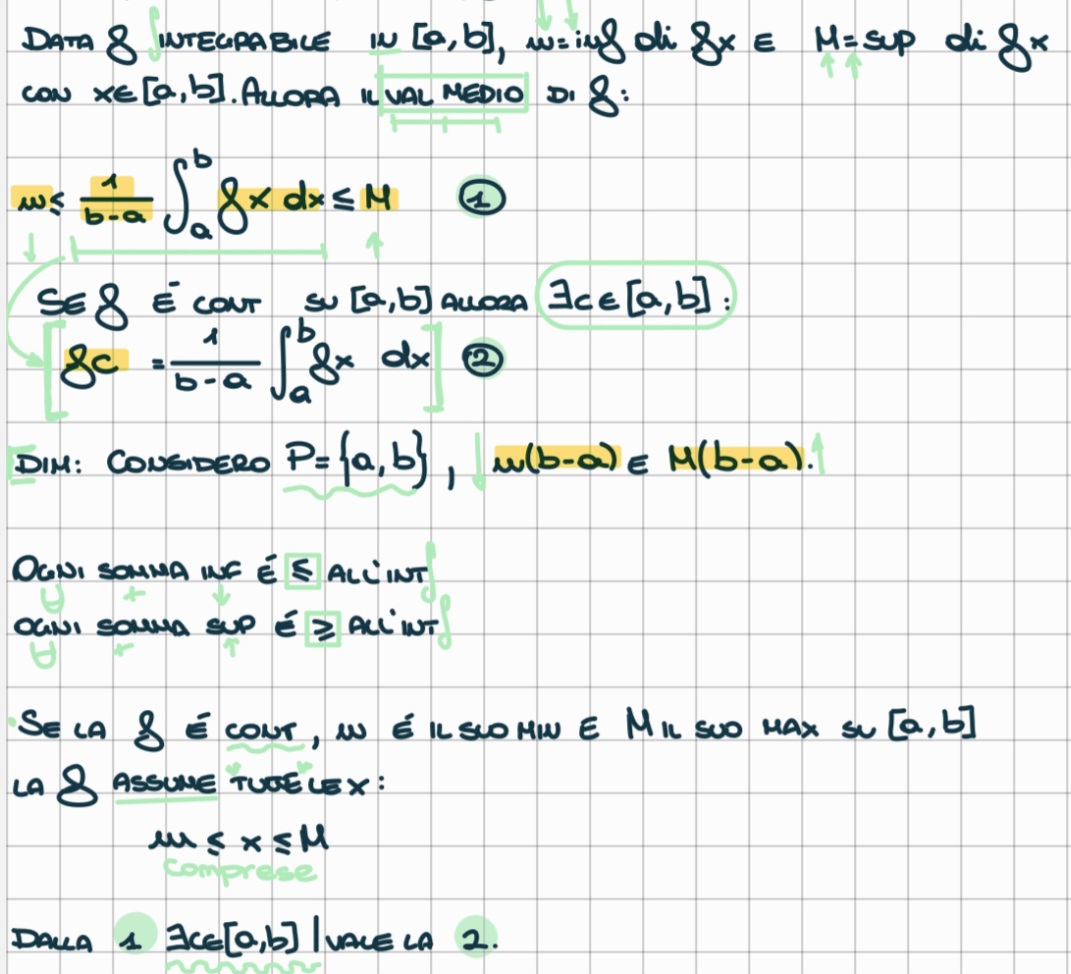 DATA f INTEGRABILE IN [a,b], m=inf di fx E M=SUP di fx
CON x∈[a,b]. ALLORA IL VAL MEDIO DI f:
m ≤ 1/(b-a) ∫_a^b fx dx ≤ M ①
SE f É CONT SU [a,b] ALLORA ∃c∈[a,b]:
[fc = 1/(b-a) ∫_a^b fx dx] ②
DIM: CONSIDERO P={a,b}, ↓ m(b-a) E M(b-a). ↑
OGNI SOMMA INF É ≤ ALL'INT ∫
OGNI SOMMA SUP É ≥ ALL'INT ∫
• SE LA f É CONT, m É IL SUO MIN E M IL SUO MAX SU [a,b]
LA f ASSUME TUTTE LE X:
m ≤ x ≤ M
comprese
DALLA 1 ∃c∈[a,b] | VALE LA 2.